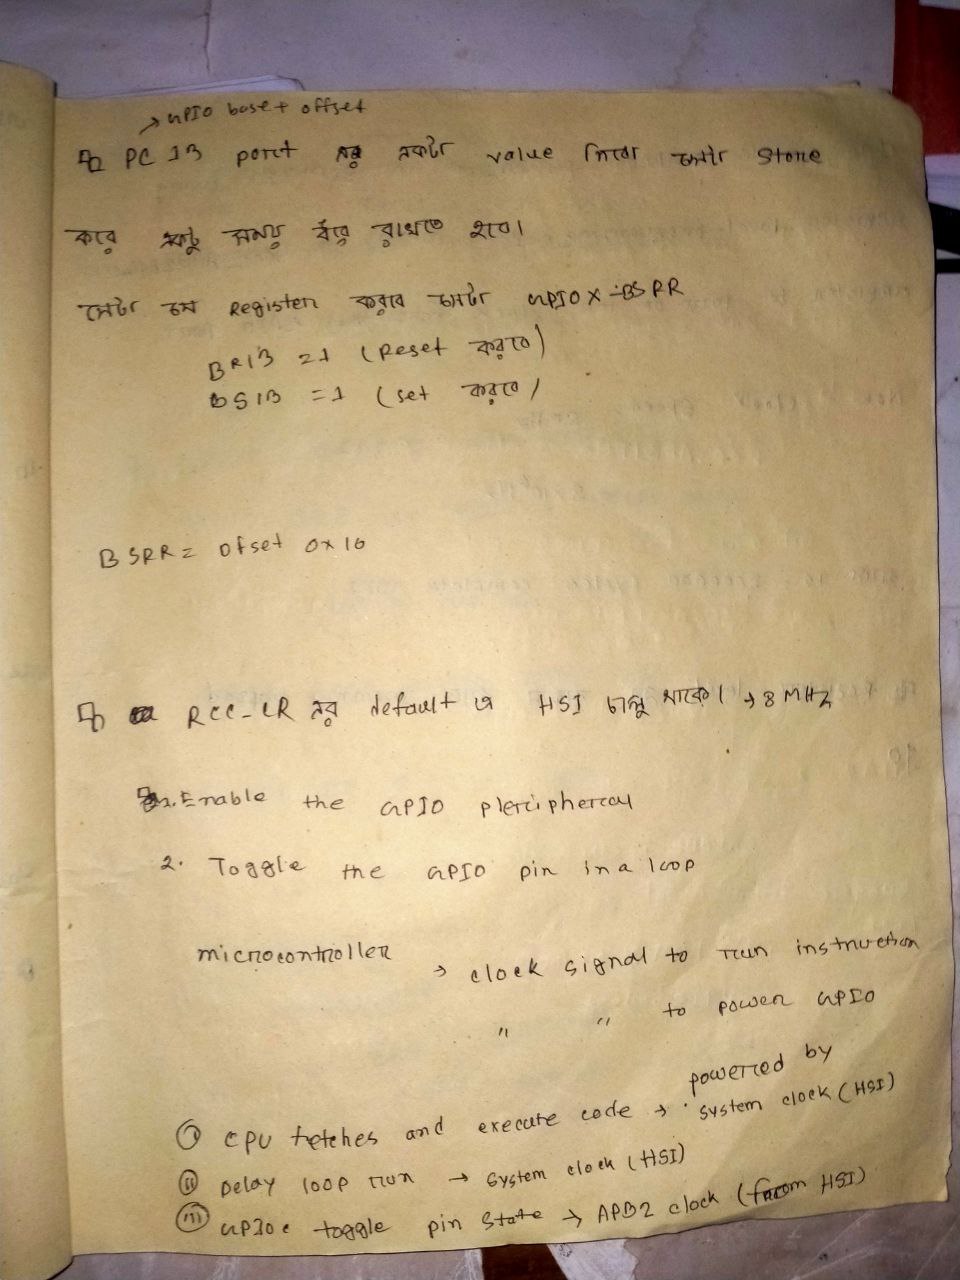 → GPIO base + offset
PC 13 port এর একটা value নিবো সেটা store
করে একটু সময় ধরে রাখতে হবে।
সেটা যে Register করবে সেটা GPIOx-BSRR
BR13 = 1 (Reset করতে)
BS13 = 1 (set করতে)
BSRR = ofset 0x10
RCC-CR এর default এ HSI চালু থাকে। → 8 MHz
1. Enable the GPIO pleripheral
2. Toggle the GPIO pin in a loop
microcontroller → clock signal to run instruction
" " to power GPIO
powered by
(i) CPU fetches and execute code → system clock (HSI)
(ii) Delay loop run → system clock (HSI)
(iii) GPIOc toggle pin state → APB2 clock (from HSI)